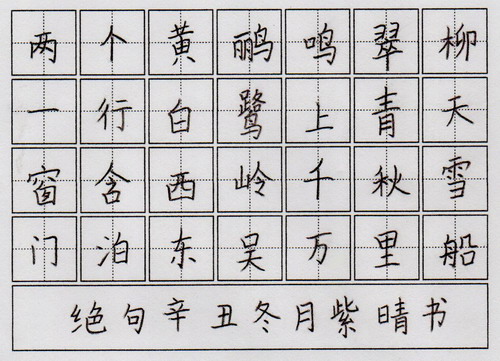 两个黄鹂鸣翠柳
一行白鹭上青天
窗含西岭千秋雪
门泊东吴万里船
绝句辛丑冬月紫晴书